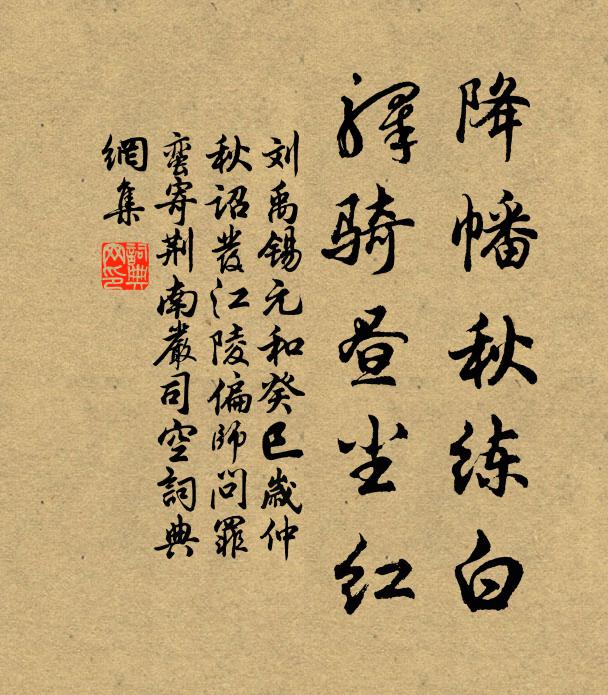 降幡秋练白
驿骑昼尘红
刘禹锡元和癸巳岁仲
秋詔發江陵偏師问罪
蛮寄荆南嚴司空詞典
網集
詞典网印